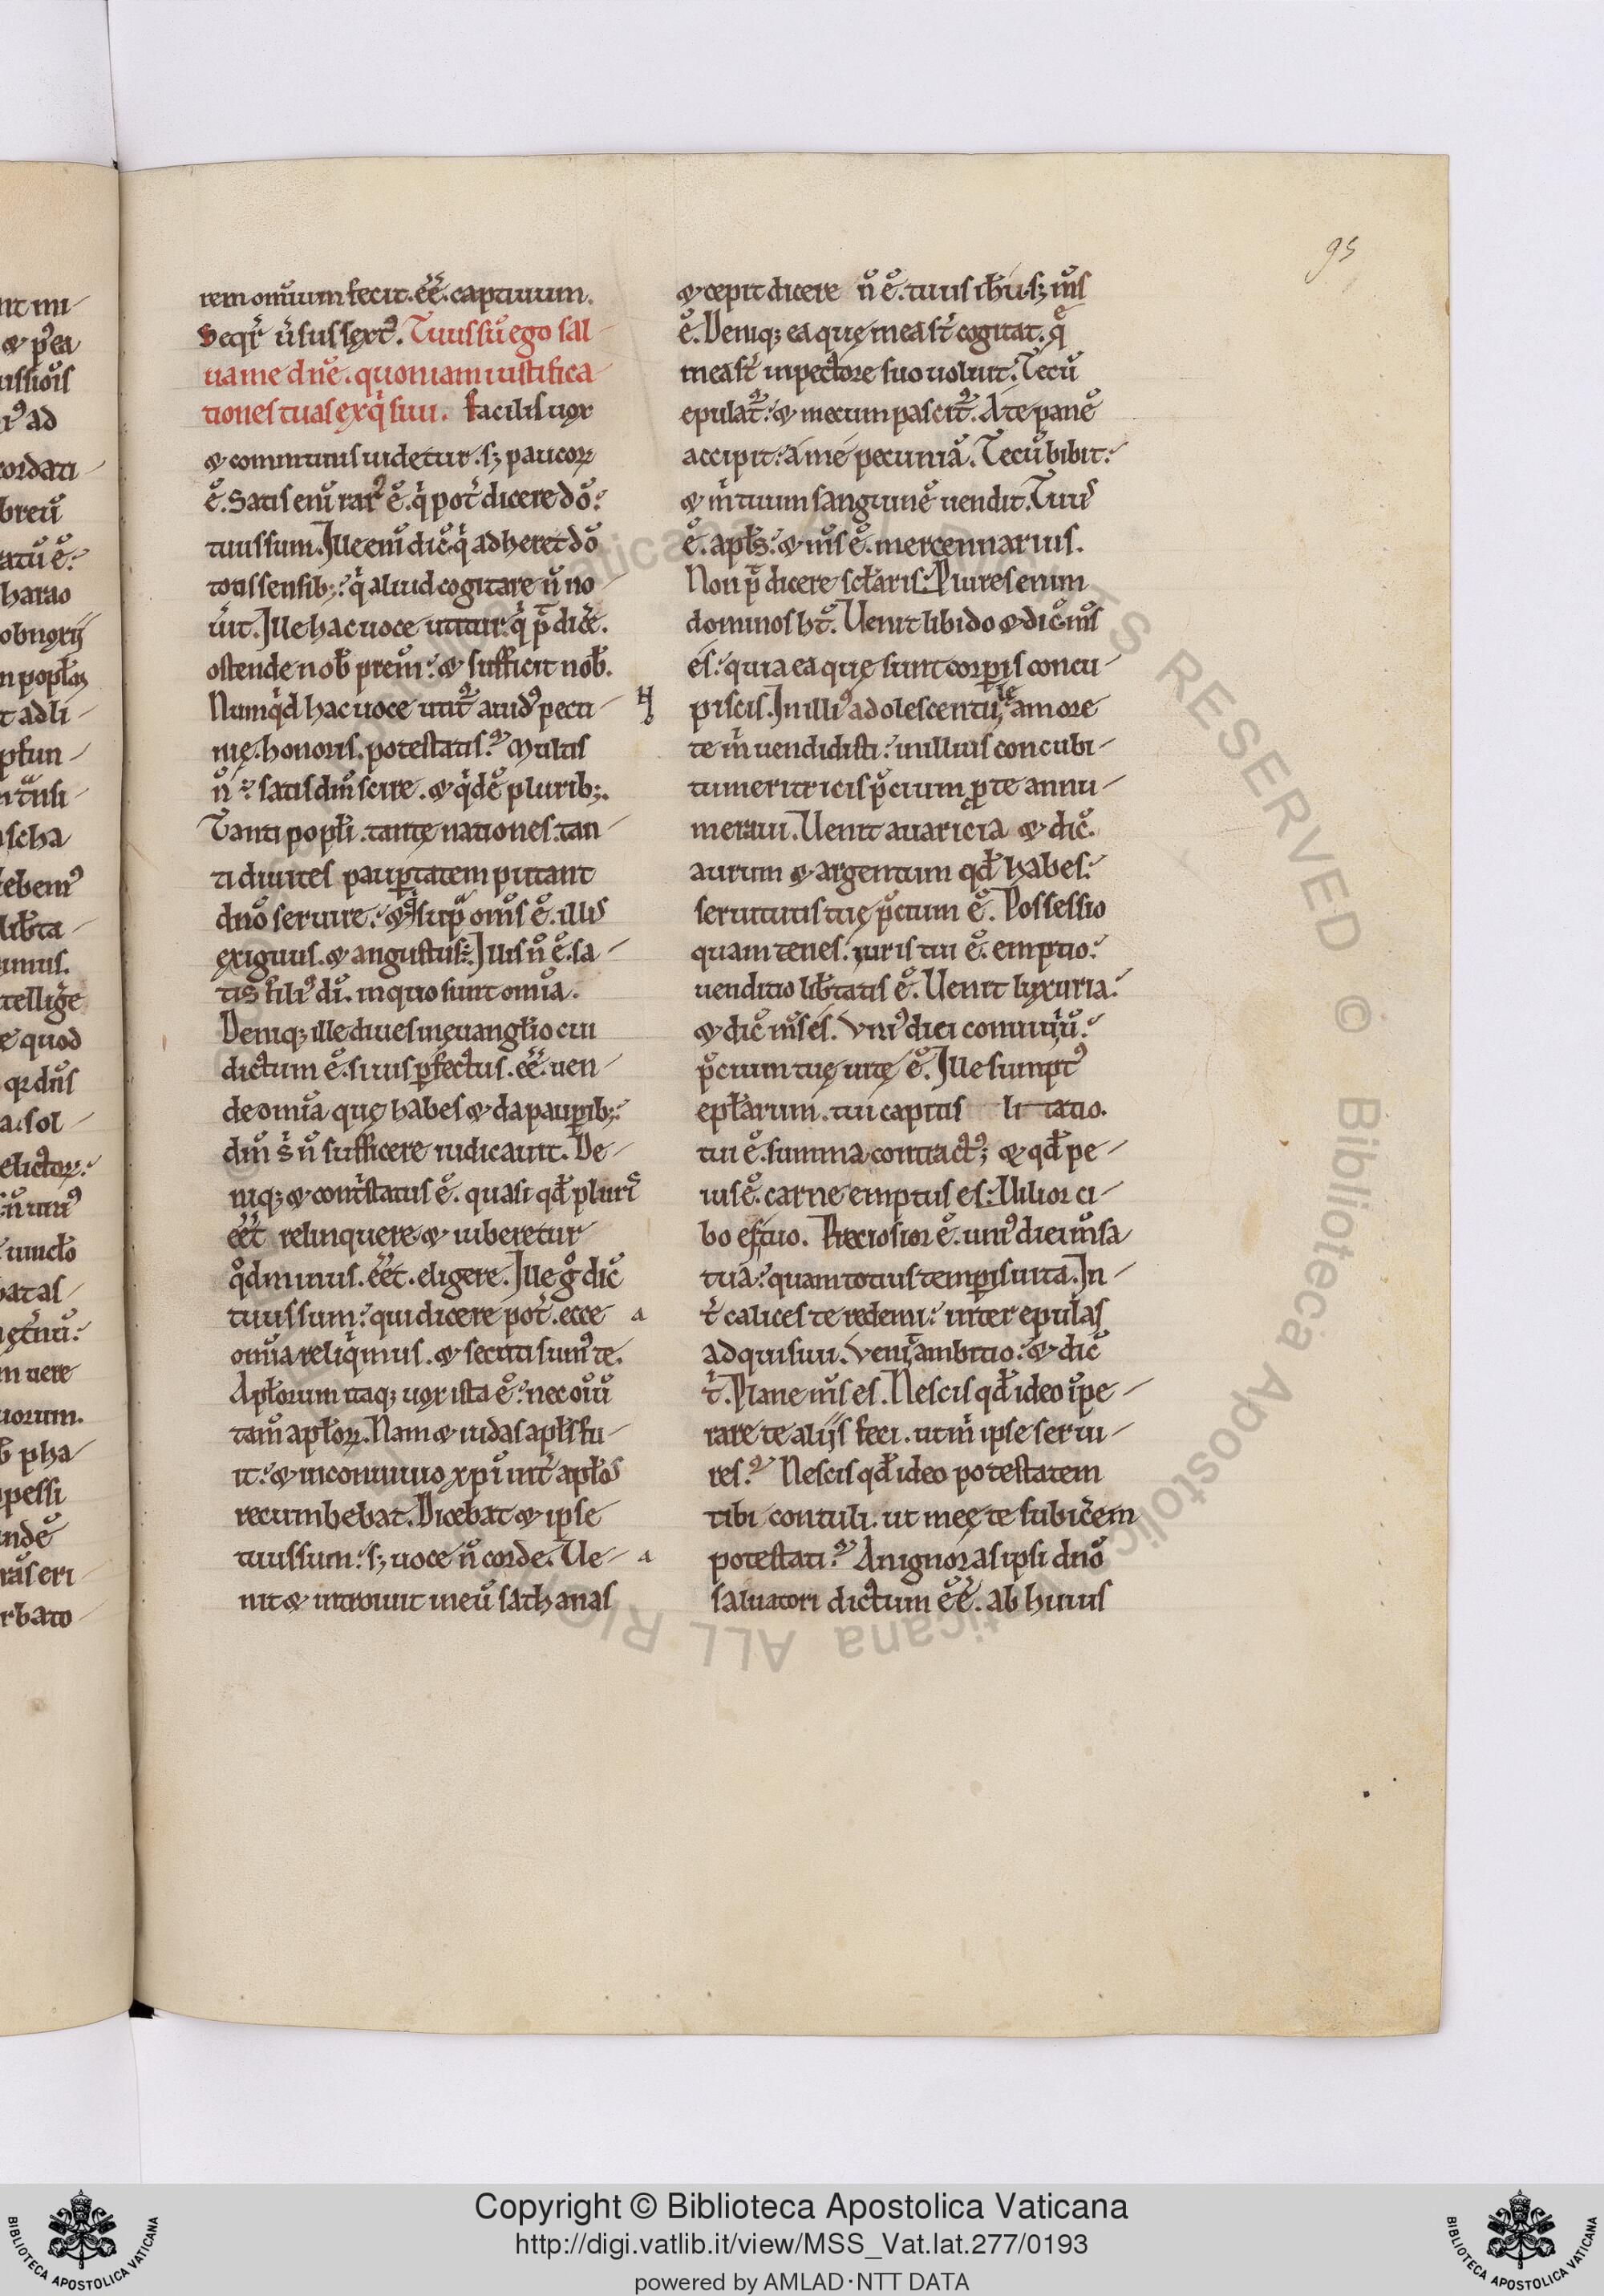 95
rem omnium fecit. ee̅. captiuum.
Seqr̅ uͥsus sext᷒. Tuus sū ego sal-
uame dne̅. quoniam iustifica-
tiones tuas exqͥsiui. Facilis uox
& communis uidetur. sꝫ paucoꝝ
e̅. Satis eni̅ rar᷒ e̅. qͥ pot̅ dicere do̅.
tuus sum. Ille eni̅ dic̅ qͥ adheret do̅
totis sensibꝫ. qͥ aliud cogitare n̅ no-
uit. Ille hac uoce utitur. qͥ p̅t dice̅.
ostende nob̅ prem̅. & sufficit nob̅.
Nunqͥd hac uoce utit᷑ auid᷒ pecu-
nie̜. honoris. potestatis. Multis
n̅ satis dm̅ scire. & qͥde̅ pluribꝫ.
Tanti popl̅i. tante̜ nationes. tan-
ti diuites pauꝑtatem putant
dno̅ seruire. & qͥ sup̅ oms̅ e̅. illis
exiguus. & angustus. Illis n̅ e̅. sa-
tis fili᷒ di̅. in quo sunt omi̅a.
Deniqꝫ ille diues in euangl̅io cui
dictum e̅. si uis ꝑfectus. ee̅. uen-
de omi̅a que̜ habes & da pauꝑibꝫ.
dm̅ sͥ n̅ sufficere iudicauit. De-
niqꝫ & contͥstatus e̅. quasi qd̅ pluri᷒
ee̅t relinquere & iuberetur
qͦd minus. ee̅t. eligere. Ille gͦ dic̅
tuus sum. qui dicere pot̅. ecce
omi̅a reliqͥmus. & secuti sum᷒ te.
Apl̅orum itaqꝫ uox ista e̅. nec oi̅u̅
tam̅ apl̅oꝝ. Nam & iudas apl̅s fu-
it. & in conuiuio xpi̅ int̅ apl̅os
recumbebat. Dicebat & ipse
tuus sum. sꝫ uoce n̅ corde. Ue-
nit & introiuit in eu̅ sathanas
& cepit dicere n̅ e̅. tuus ih̅u. sꝫ ms̅
e̅. Deniqꝫ ea que̜ mea st̅ cogitat. q̅
mea st̅ in pectore suo uoluit. Tecu̅
epulat᷑. & mecum pascit᷑. A te pane̅
accipit. a me pecunia̅. Tecu̅ bibit.
& mͥ tuum sanguine̅ uendit. Tuus
e̅. apl̅s. & ms̅ e̅. mercennarius.
Non p̅t dicere scl̅aris. Plures enim
dominos ht̅. Uenit libido & dic̅ ms̅
es. quia ea que̜ sunt corꝑis concu-
piscis. In illi᷒ adolescentule̜ amore
te mͥ uendidisti. in illius concubi-
tu meritricis p̅cium ꝑ te annu-
meraui. Uenit auaricia & dic̅.
aurum & argentum qd̅ habes.
seruitutis tue̜ p̅cium e̅. Possessio
quam tenes. iuris tui e̅. emptio.
uenditio lib̅tatis e̅. Uenit luxuria.
& dic̅ ms̅ es. Uni᷒ diei conuiuiu̅.
p̅cium tue̜ uite̜ e̅. Ille sumpt᷒
epl̅arum. tui capitis li tatio.
tui e̅. summa contract᷒; & qd̅ pe-
ius e̅. carne emptus es. Uilior ci-
bo es tuo. Preciosior e̅. uni᷒ diei m̅sa
tua. quam totius temꝑis uita. In-
t̅ calices te redemi. inter epulas
adquisiui. Venit ambitio. & dic̅
tͥ. Plane ms̅ es. Nescis qd̅ ideo i̅pe-
rare te alijs feci. ut mͥ ipse serui-
res. Nescis qd̅ ideo potestatem
tibi contuli. ut mee̜ te subice̅m
potestati. An ignoras ipsi dno̅
saluatori dictum ee̅. ab huius
Copyright © Biblioteca Apostolica Vaticana
http://digi.vatlib.it/view/MSS_Vat.lat.277/0193
powered by AMLAD·NTT DATA